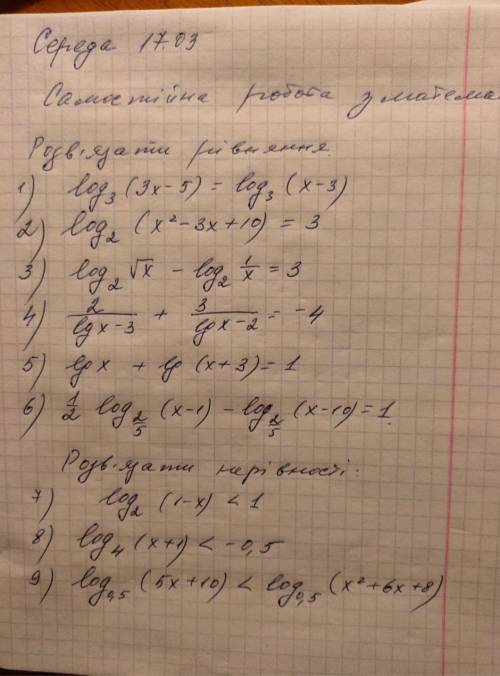 Середа 17.03
Самостійна робота з матема
Розв'язати рівняння.
1) log₃ (3x-5) = log₃ (x-3)
2) log₂ (x²-3x+10) = 3
3) log₂ √x - log₂ 1/x = 3
4) 2/(lgx-3) + 3/(lgx-2) = -4
5) lgx + lg (x+3) = 1
6) 1/2 log_{2/5} (x-1) - log_{2/5} (x-10) = 1.
Розв'язати нерівності.
7) log₂ (1-x) < 1
8) log₄ (x+1) < -0,5
9) log_{0,5} (5x+10) < log_{0,5} (x²+6x+8)